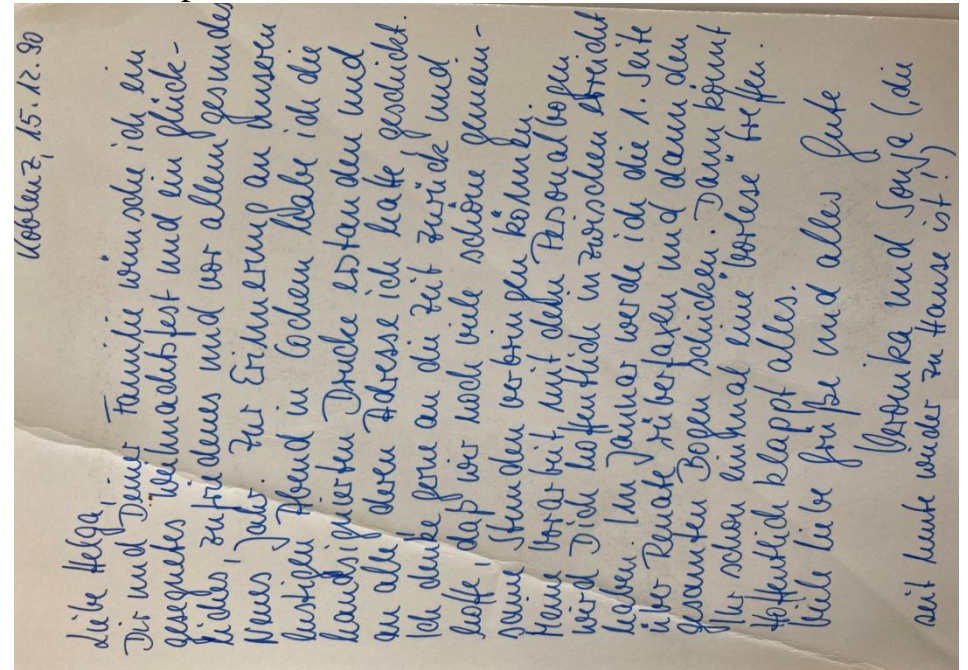 Koblenz, 15.12.90
Liebe Helga, -
Dir und Deiner Familie wünsche ich ein
gesegnetes Weihnachtsfest und ein glück-
liches, zufriedenes und vor allem gesundes
Neues Jahr. Zur Erinnerung an unseren
lustigen Abend in Cochem habe ich die
handsignierten Drucke erstanden und
an alle, deren Adresse ich hatte geschickt.
Ich denke gerne an die Zeit zurück und
hoffe, daß wir noch viele schöne gemein-
same Stunden verbringen können.
Meine Vorarbeit mit dem Personalbogen
wird Dich hoffentlich inzwischen erreicht
haben. Im Januar werde ich die 1. Seite
über Renate rüberfaxen und dann den
gesamten Bogen schicken. Dann könnt
Ihr schon einmal eine "Vorlese" treffen.
Hoffentlich klappt alles.
Viele liebe Grüße und alles Gute
Veronika und Sonja (die
seit heute wieder zu Hause ist!)